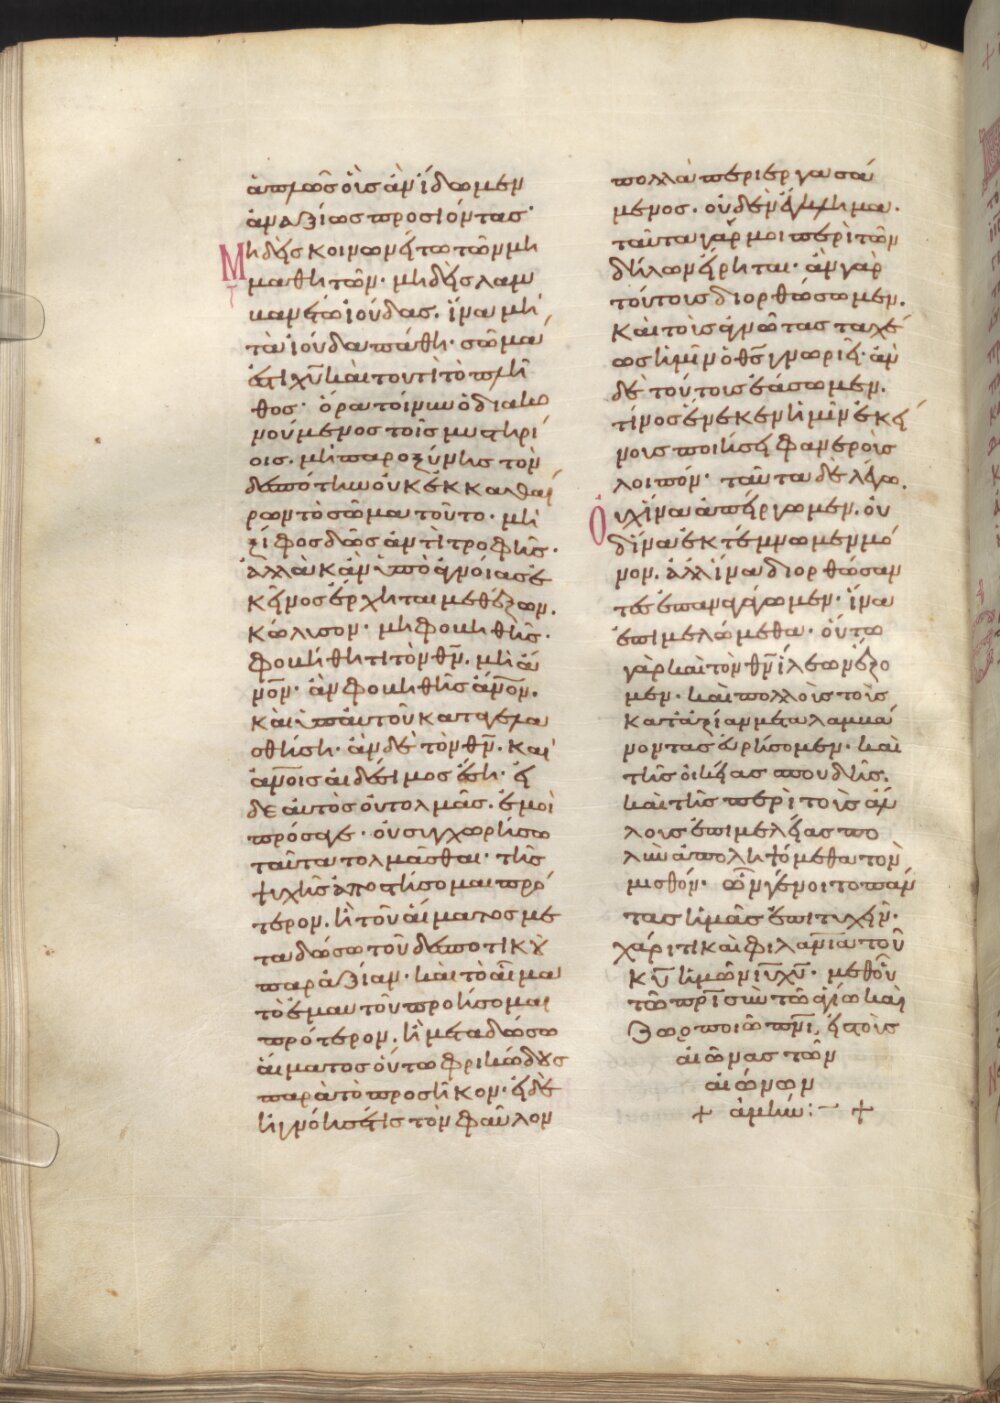 ἁπλῶς οἷς ἂν ἴδωμεν
ἀναξίως προσιόντας·
Μηδεὶς κοινωνείτω τῶν μὴ
μαθητῶν· μηδεὶς λαμ
βανέτω ἰούδας. ἵνα μὴ
τὰ ἰούδα πάθη· σῶμά
ἐστι χῦ καὶ τουτὶ τὸ πλῆ
θος· ὅρα τοίνυν ὁ διακο
νούμενος τοῖς μυστηρί
οις. μὴ παροξύνης τὸν
δεσπότην οὐκ ἐκκαθαί
ρων τὸ σῶμα τοῦτο· μὴ
ξίφος δῶς ἀντὶ τροφῆς·
ἀλλὰ κἂν ὑπὸ ἀνοίας ἐ
κεῖνος ἔρχηται μεθέξων.
κώλυσον· μὴ φοβηθῆς·
φοβήθητι τὸν θν̄. μὴ ἄ
νον̄· ἂν φοβηθῆς ἄνον̄.
καὶ ὑπ' αὐτοῦ καταγελα
σθήση· ἂν δὲ τὸν θν̄. καὶ
ἀν̄οις αἰδέσιμος ἔση· εἰ
δὲ αὐτὸς οὐ τολμᾶς. ἐμοὶ
πρόσαγε· οὐ συγχωρήσω
ταῦτα τολμᾶσθαι· τῆς
ψυχῆς ἀποστήσομαι πρό
τερον. ἢ τοῦ αἵματος με
ταδώσω τοῦ δεσποτικοῦ
παρ' ἀξίαν· καὶ τὸ αἷμα
τὸ ἐμαυτοῦ προήσομαι
πρότερον. ἢ μεταδώσω
αἵματος οὕτω φρικώδους
παρὰ τὸ προσῆκον· εἰ δὲ
ἠγνόησέ τις τὸν φαῦλον
πολλὰ περιεργασά
μενος. οὐδὲν ἔγκλημα.
ταῦτα γάρ μοι περὶ τῶν
δήλων εἴρηται· ἂν γὰρ
τούτους διορθώσωμεν.
καὶ τοὺς ἀγνῶτας ταχέ
ως ἡμῖν ὁ θς̄ γνωριεῖ· ἂν
δὲ τούτους ἐάσωμεν.
τίνος ἕνεκεν ἡμῖν ἐκεί
νους ποιήσει φανεροὺς
λοιπόν· ταῦτα δὲ λέγω.
Οὐχ ἵνα ἀπείργωμεν. οὐ
δ' ἵνα ἐκτέμνωμεν μό
νον. ἀλλ' ἵνα διορθώσαν
τες ἐπαναγάγωμεν· ἵνα
ἐπιμελώμεθα· οὕτω
γὰρ καὶ τὸν θν̄ ἵλεων ἕξο
μεν· καὶ πολλοὺς τοὺς
κατ' ἀξίαν μεταλαμβά
νοντας εὑρήσομεν· καὶ
τῆς οἰκείας σπουδῆς.
καὶ τῆς περὶ τοὺς ἄλ
λους ἐπιμελείας πο
λὺν ἀποληψόμεθα τὸν
μισθόν· ὧν γένοιτο πάν
τας ἡμᾶς ἐπιτυχεῖν·
χάριτι καὶ φιλαν̄ία τοῦ
κῡ ἡμῶν ῑῡ χῡ· μεθ' οὗ
τῶ πρῑ σὺν τῶ ἁγίω καὶ
ζωοποιῶ πνῑ. εἰς τοὺς
αἰῶνας τῶν
αἰώνων
+ ἀμήν:– +